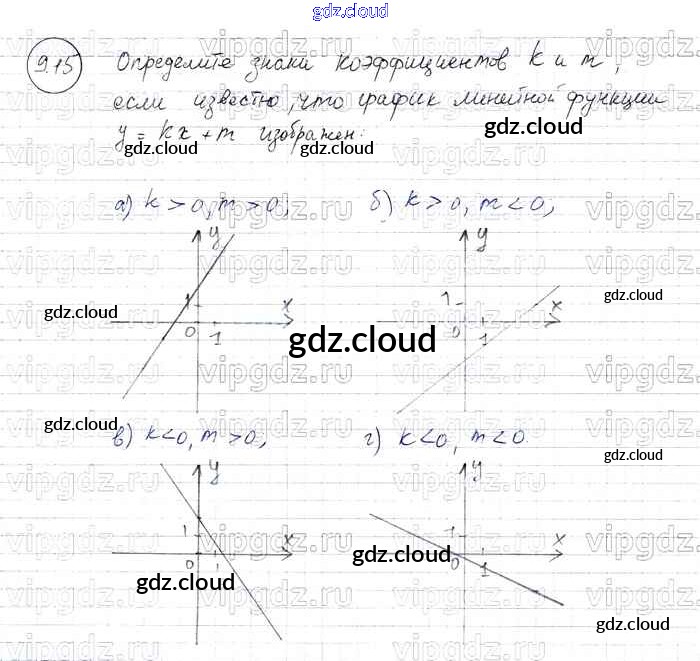 gdz.cloud
9.15 Определите знаки коэффициентов k и m,
если известно, что график линейной функции
y = kx + m изображен:
gdz.cloud
gdz.cloud
gdz.cloud
а) k > 0, m > 0;
б) k > 0, m < 0;
y
y
gdz.cloud
gdz.cloud
1
x
1
x
0
1
0
1
gdz.cloud
gdz.cloud
в) k < 0, m > 0;
г) k < 0, m < 0.
gdz.cloud
y
y
1
x
1
x
0
1
0
1
gdz.cloud
gdz.cloud
gdz.cloud
vipgdz.ru